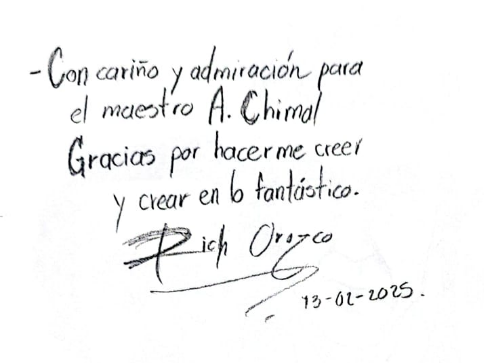 - Con cariño y admiración para
el maestro A. Chimal
Gracias por hacerme creer
y crear en lo fantástico.
Rich Orozco
13-02-2025.